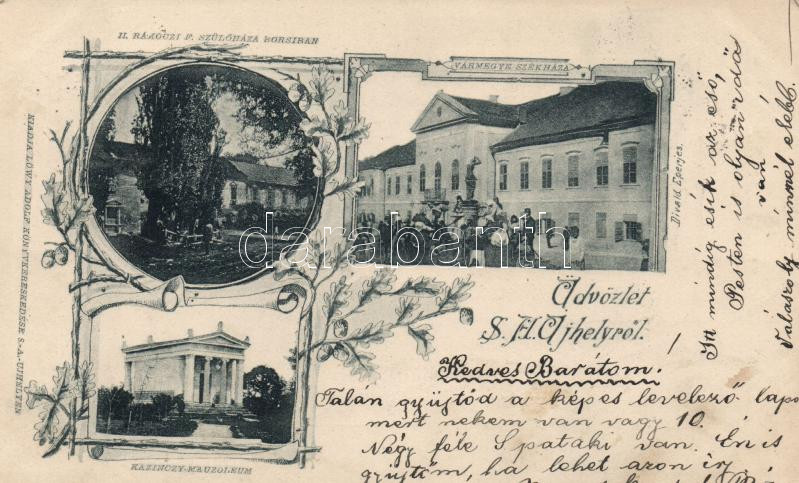 II. RÁKÓCZI F. SZÜLŐHÁZA BORSIBAN
VÁRMEGYE SZÉKHÁZA
KIADJA LÖWY ADOLF KÖNYVKERESKEDÉSE S.-A.-UJHELYTEN
Divald Eperjes.
darabanth.com
Üdvözlet
S. A. Ujhelyről.
KAZINCZY-MAUZOLEUM
Kedves Barátom!
Talán gyüjtöd a képes levelező lapo
mert nekem van vagy 10.
Négy féle S pataki van. Én is
gyüjtöm, ha lehet azon irj
Itt mindig esik az eső,
Pesten is olyan idő
van
Válaszolj minnél elébb.